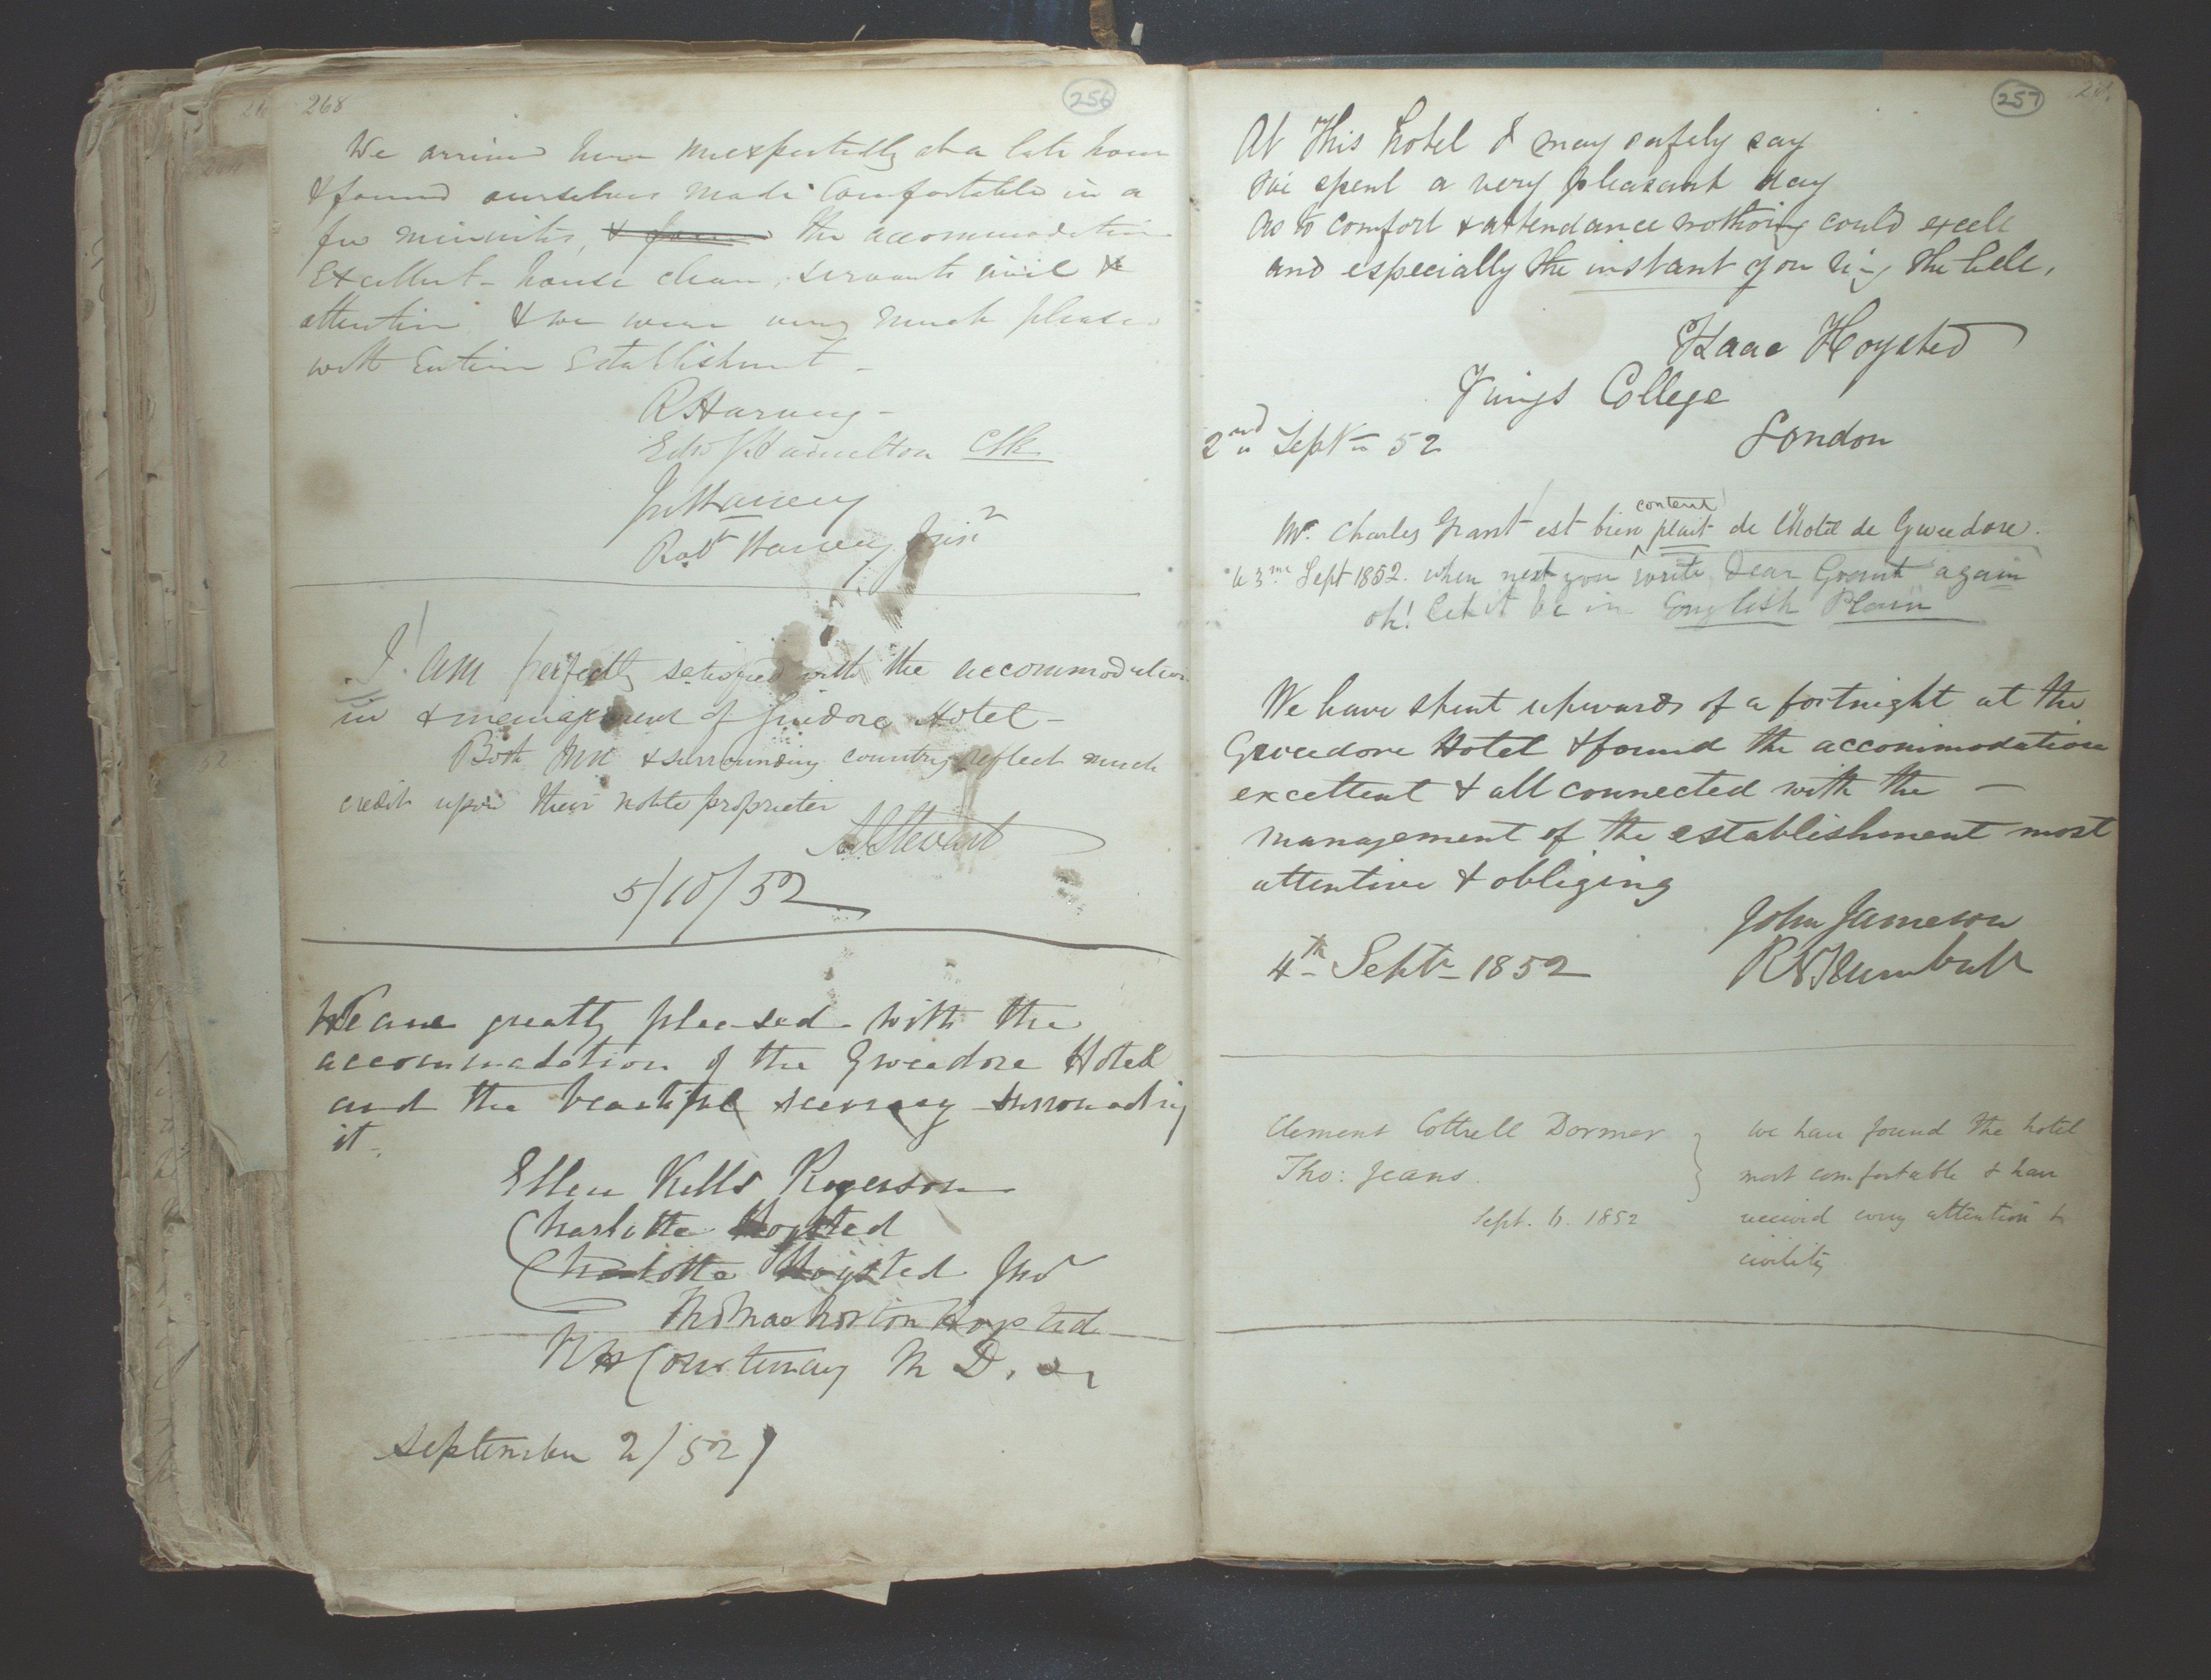 268
256
We arrived here unexpectedly at a late hour
& found ourselves made comfortable in a
few minuites, & foun the accommodation
Excellent - house clean, servants civil &
attentive & we were very much pleased
with Entire Establishment -
R Harvey -
Edw J Hamilton Clk
Jn Harvey
Robt Harvey Junr
I! am perfectly satisfied with the accommodation
in & management of Guidore Hotel -
Both Inn & surrounding country reflect much
credit upon their noble proprieter
Stewart
5/10/52
We are greatly pleased with the
accommodation of the Gweedore Hotel
and the beautiful scenery surrounding
it.
Ellen Kells Rogerson
Charlotte Hoysted
Charlotte Hoysted Jnr
Thomas Norton Hoysted
Courtenay M D.
September 2/52
257
At This hotel I may safely say
I've spent a very pleasant day
As to comfort & attendance nothoing could excell
and especially the instant you ring the bell,
Isaac Hoysted
Kings College
London
2nd Septr 52
content
Mr. Charles Grant est bien plait de l'hotel de Gweedore.
le 3me Sept 1852. when next you write, Dear Grant again
oh! let it be in English Plain
We have spent upwards of a fortnight at the
Gweedore Hotel & found the accommodation
excellent & all connected with the —
management of the establishment most
attentive & obliging
John Jameson
4th Septr 1852
Clement Cottrell Dormer
Tho: Jeans.
Sept. 6. 1852
we have found the hotel
most comfortable & have
received every attention &
civility